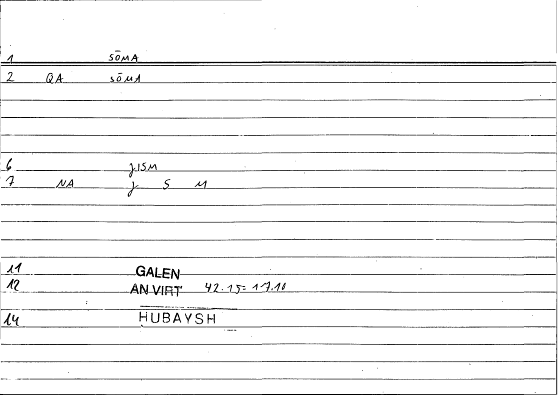 1 SŌMA
2 QA SŌMA
6 JISM
7 NA J S M
11 GALEN
12 AN VIRT 42.15= 17.10
14 HUBAYSH